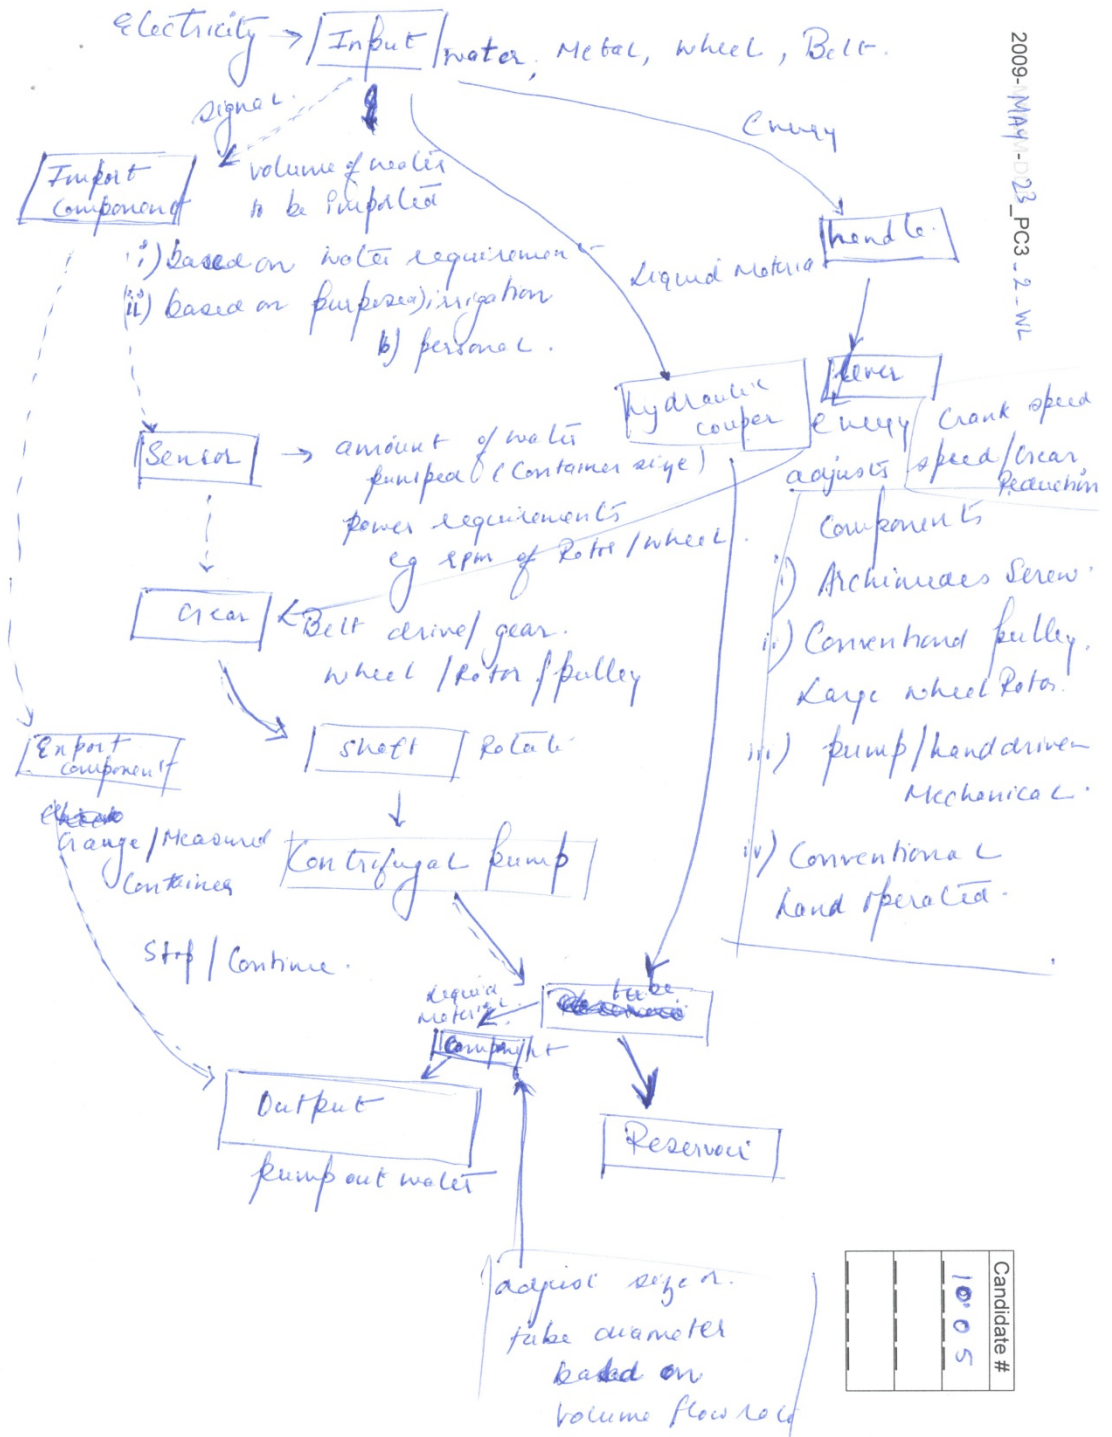 Electricity → Input water, Metal, wheel, Belt.
signal.
Energy
Import
component
volume of water
to be imported
i) based on water requirement
ii) based on purpose a) irrigation
b) personal.
handle.
Liquid Material
lever
hydraulic
couper
energy
adjusts
Crank speed
speed/Gear
Reduction
Sensor → amount of water
pumped (Container size)
power requirements
eg rpm of Rotor/wheel.
Components
i) Archimedes Screw.
ii) Conventional pulley,
Large wheel Rotor.
iii) pump/hand driven
Mechanical.
iv) Conventional
hand operated.
Gear
Belt drive/gear.
wheel/Rotor/pulley
shaft Rotate
Export
component
Gauge/Measured
Container
Centrifugal pump
Stop/Continue.
Liquid
Material.
tube
Output
pump out water
Reservoir
adjust size or
tube diameter
based on
volume flow rate
2009-MAY-23_PC3_2_WL
Candidate #
1005